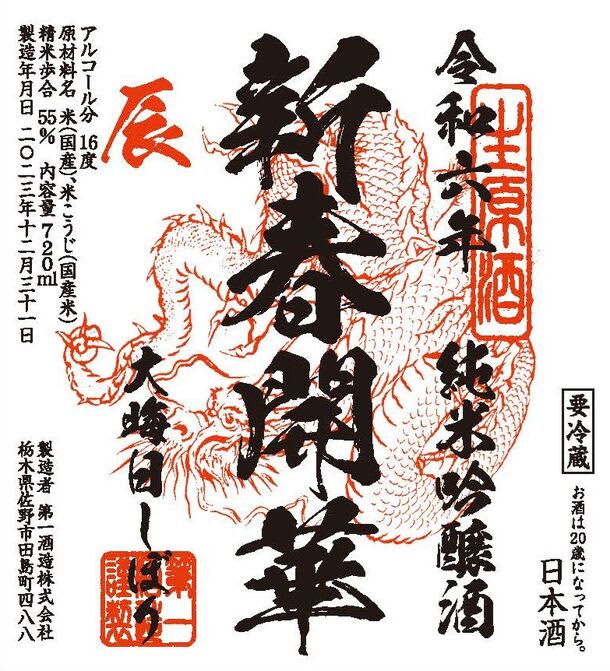 令和六年
純米吟醸酒
生原酒
要冷蔵
お酒は20歳になってから。
日本酒
新春開華
辰
大晦日しぼり
第一
謹製
アルコール分 16度
原材料名 米(国産)、米こうじ(国産米)
精米歩合 55% 内容量 720ml
製造年月日 二〇二三年十二月三十一日
製造者 第一酒造株式会社
栃木県佐野市田島町四八八